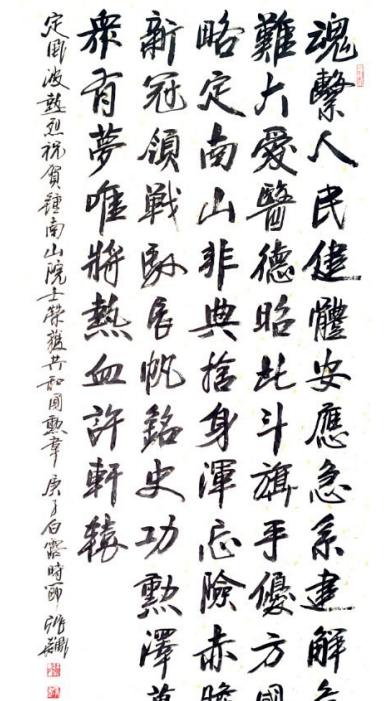 魂繫人民健體安應急系建解
難大愛醫德昭北斗旗手優方
略定南山非典捨身渾忘險赤膽
新冠領戰馭帆銘史功勳澤
眾有夢唯將熱血許軒轅
定風波熱烈祝賀鍾南山院士榮獲共和國勳章 庚子白露時節